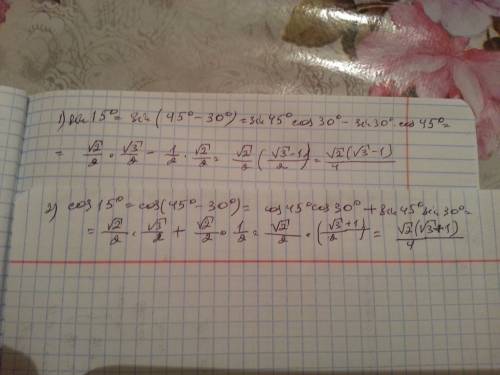 1) sin 15° = sin (45° - 30°) = sin 45° cos 30° - sin 30° · cos 45° =
= √2/2 · √3/2 - 1/2 · √2/2 = √2/2 (√3-1/2) = √2(√3-1)/4
2) cos 15° = cos(45° - 30°) = cos 45° cos 30° + sin 45° sin 30° =
= √2/2 · √3/2 + √2/2 · 1/2 = √2/2 · (√3+1/2) = √2(√3+1)/4